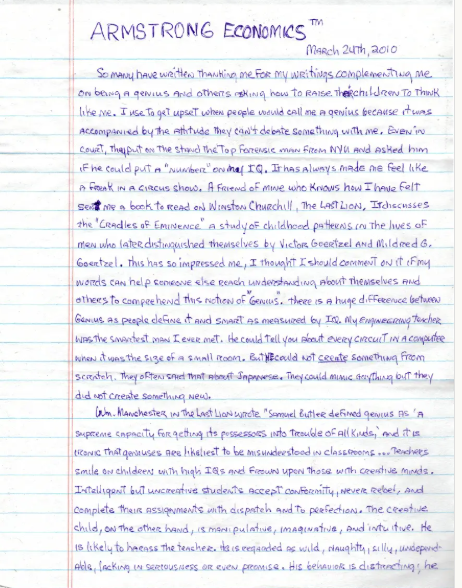 ARMSTRONG ECONOMICS™
MARCH 24TH, 2010
So many have written thanking me for my writings complementing me
on being a genius and others asking how to raise their children to think
like me. I use to get upset when people would call me a genius because it was
accompanied by the attitude they can't debate something with me. Even in
court, they put on the stand the top forensic man from NYU and asked him
if he could put a "number" on my IQ. It has always made me feel like
a freak in a circus show. A friend of mine who knows how I have felt
sent me a book to read on Winston Churchill, The Last Lion. It discusses
the "Cradles of Eminence" a study of childhood patterns in the lives of
men who later distinguished themselves by Victor Goertzel and Mildred G.
Goertzel. This has so impressed me, I thought I should comment on it if my
words can help someone else reach understanding about themselves and
others to comprehend this notion of "Genius". There is a huge difference between
Genius as people define it and smart as measured by IQ. My engineering teacher
was the smartest man I ever met. He could tell you about every circuit in a computer
when it was the size of a small room. But he could not create something from
scratch. They often said that about Japanese. They could mimic anything but they
did not create something new.
Wm. Manchester in the Last Lion wrote "Samuel Butler defined genius as 'a
supreme capacity for getting its possessors into trouble of all kinds,' and it is
ironic that geniuses are likeliest to be misunderstood in classrooms... Teachers
smile on children with high IQs and frown upon those with creative minds.
Intelligent but uncreative students accept conformity, never rebel, and
complete their assignments with dispatch and to perfection. The creative
child, on the other hand, is manipulative, imaginative, and intuitive. He
is likely to harass the teacher. He is regarded as wild, naughty, silly, undepend-
able, lacking in seriousness or even promise. His behavior is distracting; he